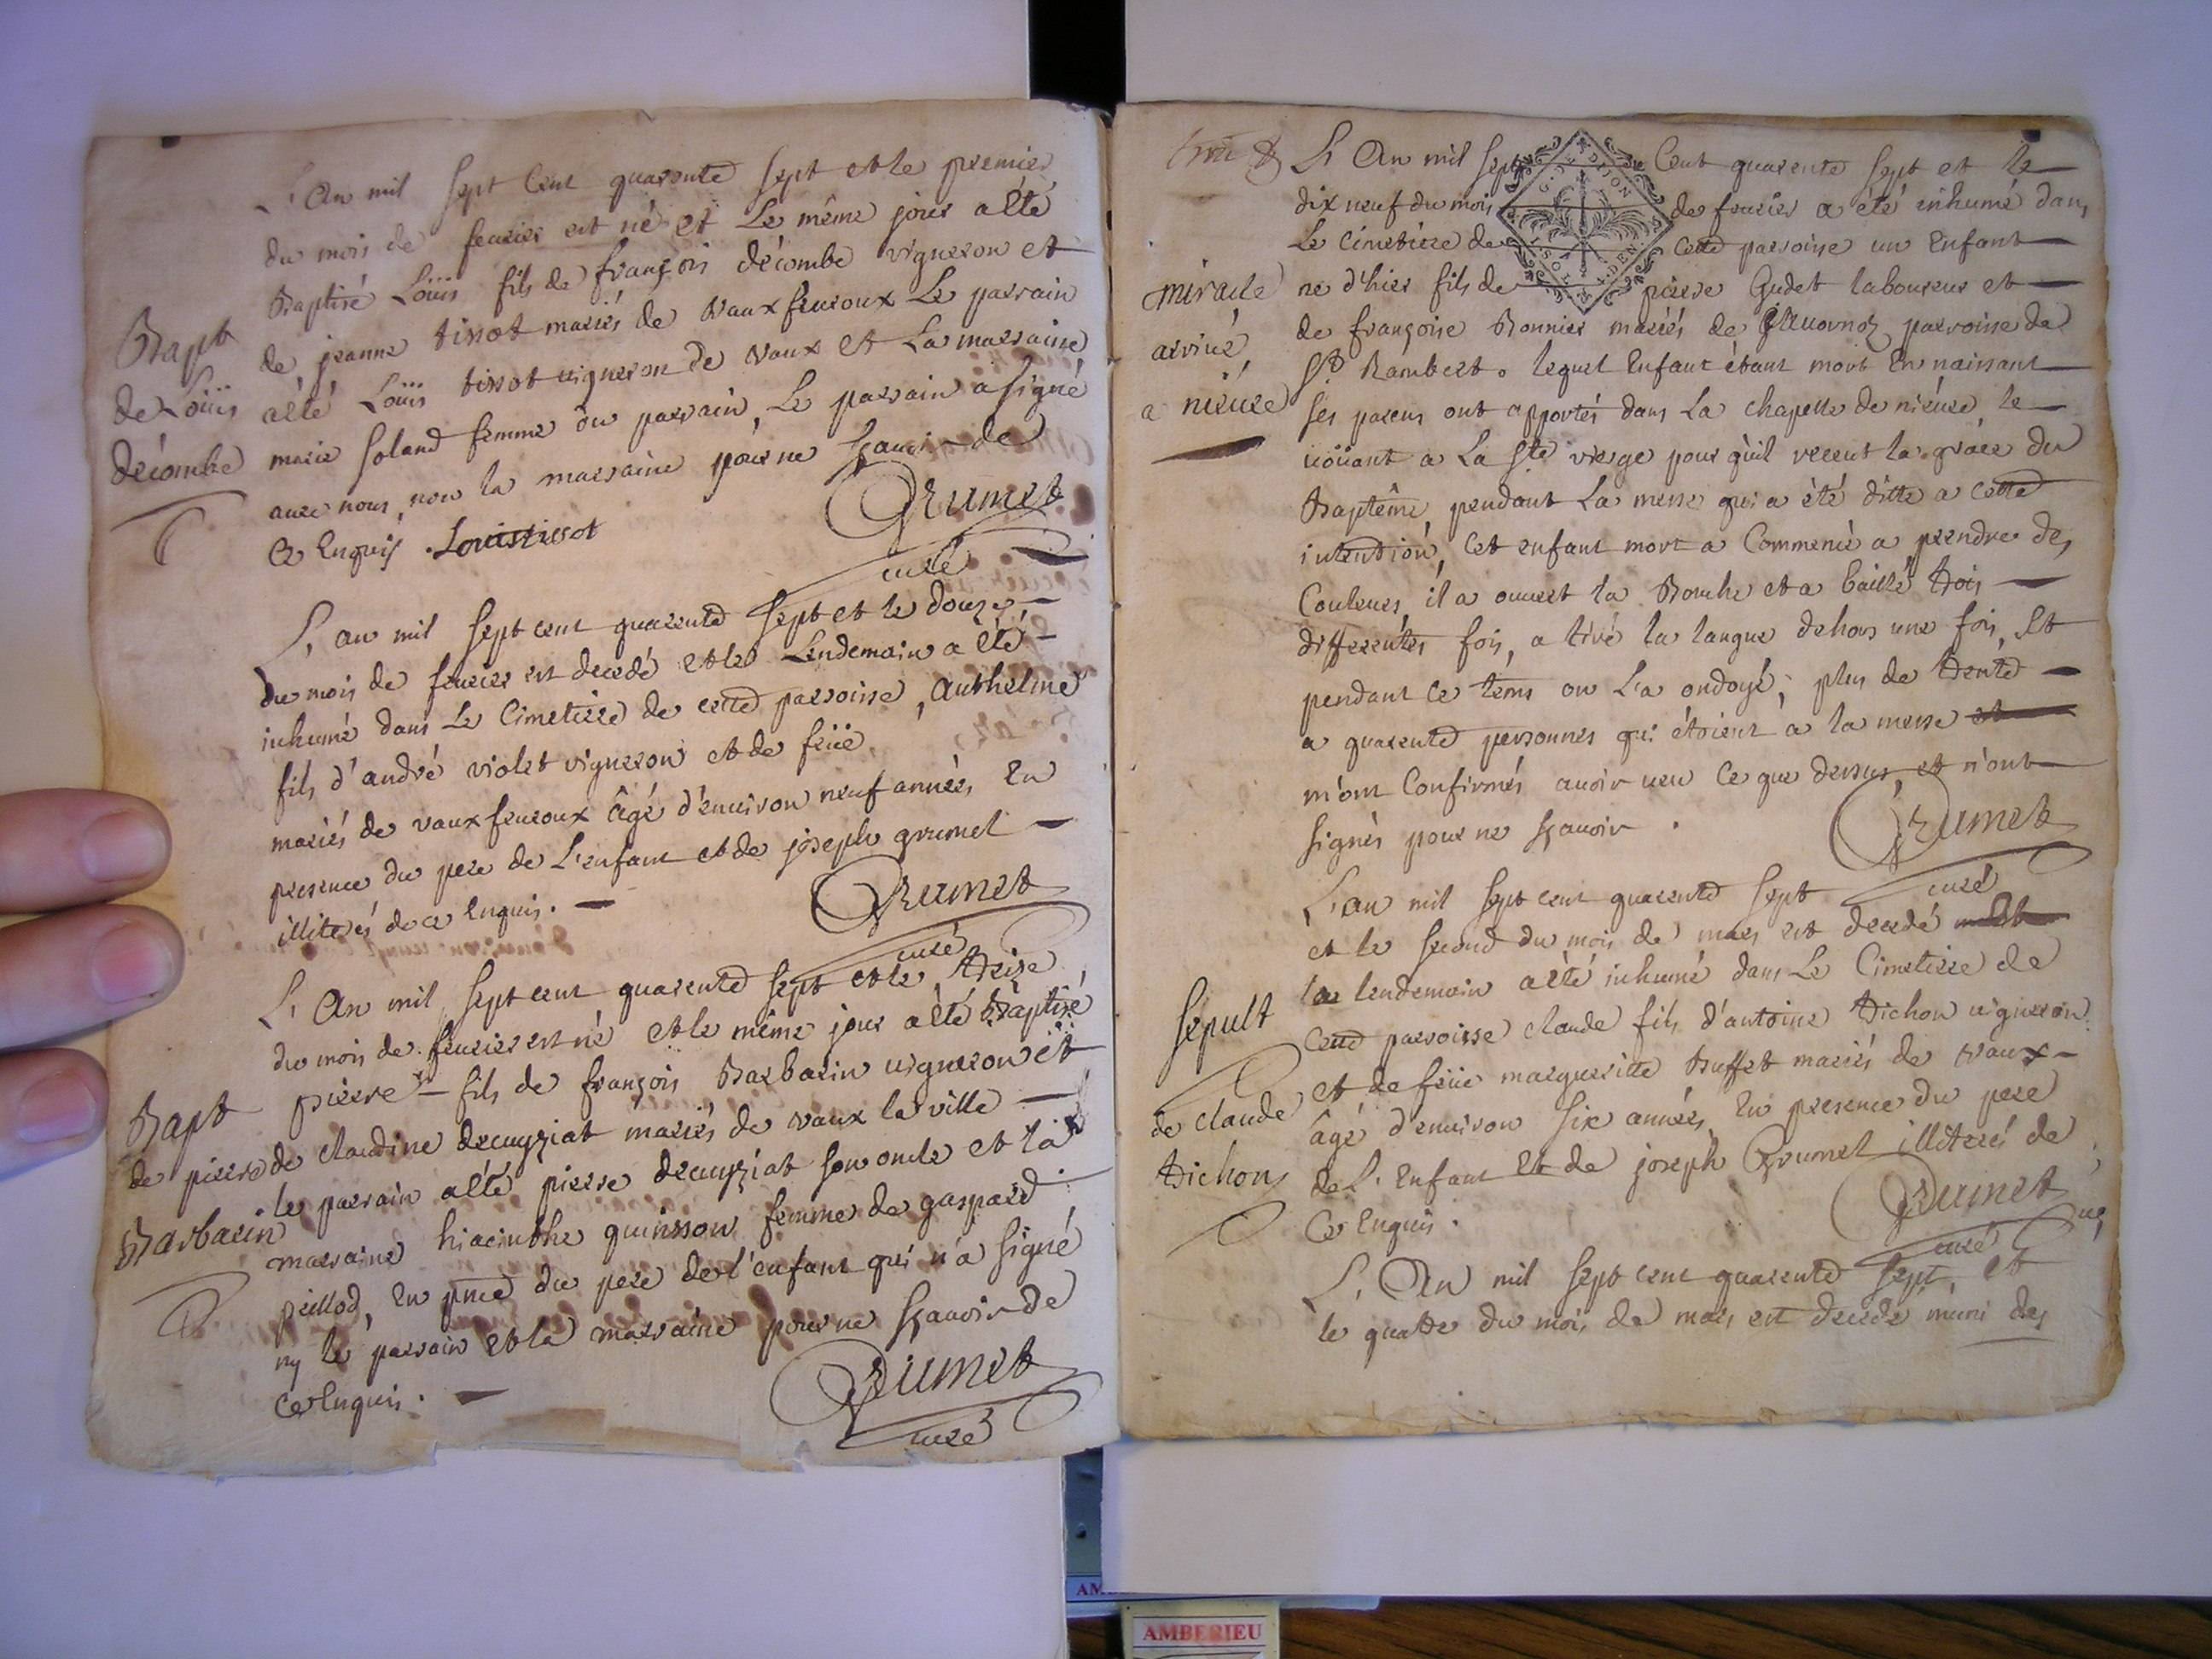 L'An mil sept cent quarente sept et le premier
du mois de feurier est né et Le même jour a été
Baptisé Loüis fils de françois décombe vigneron et
de jeanne tissot mariés de Vaux feuroux Le parrain
a été Loüis tissot uigneron de Vaux et La marraine
marie soland femme du parrain, Le parrain a signé
auec nous, non la marraine pour ne sçauoir de
Ce Enquis . Louis tissot
GRumet
curé
Bapt
de Loüis
décombe
L'an mil sept cent quarente sept et le douze
du mois de feurier est decedé et le Lendemain a été
inhumé dans Le Cimetiere de cette parroisse, Anthelme
fils d'andré violet vigneron et de feüe
mariés de vaux feuroux âgé d'enuiron neuf années, En
presence du pere de L'enfant et de joseph grumet
illiterés de ce Enquis.
GRumet
curé
L'An mil sept cent quarente sept et le treize
du mois de feurier est né et le même jour a été Baptisé
pierre fils de françois Barbarin uigneron et
de claudine decuyziat mariés de vaux la ville
le parrain a été pierre decuyziat son oncle et la
marraine hiacinthe quinsson femme de gaspard
peillod, En pnce du pere de l'enfant qui n'a signé
ny le parrain et la marraine pour ne sçauoir de
Ce Enquis.
GRumet
curé
Bapt
de pierre
Barbarin
L'An mil sept Cent quarente sept et le
dix neuf du mois de feurier a été inhumé dans
Le Cimetiere de cette parroisse un Enfant
ne d'hier fils de pierre Gudet laboureur et
de françoise Bonnier mariés de parroisse de
St Rambert. lequel Enfant étant mort En naissant
ses parens ont apportés dans La chapelle de nieure le
uoüant a La Ste vierge pour qu'il recut la grace du
Baptême, pendant La messe qui a été ditte a cette
intention, Cet enfant mort a Commencé a prendre des
Couleurs, il a ouuert la Bouche et a baillé trois
differentes fois, a tiré la langue dehors une fois, Et
pendant Ce tems on L'a ondoyé; plus de trente
a quarente personnes qui étoient a la messe et
m'ont Confirmés auoir ueu Ce que dessus, et n'ont
signés pour ne sçauoir.
GRumet
curé
miracle
arriué
a nieure
G. DE DIJON
L'an mil sept cent quarente sept
et le second du mois de mars est decedé et
le lendemain a été inhumé dans Le Cimetiere de
cette parroisse claude fils d'antoine trichon uigneron
et de feüe margueritte Buffet mariés de vaux
âgé d'enuiron six années, En presence du pere
de L'Enfant Et de joseph Grumet illiterés de
Ce Enquis.
GRumet
curé
sepult
de claude
trichon
L'An mil sept cent quarente sept, et
le quattre du mois de mars est decedé muni des
AMBERIEU